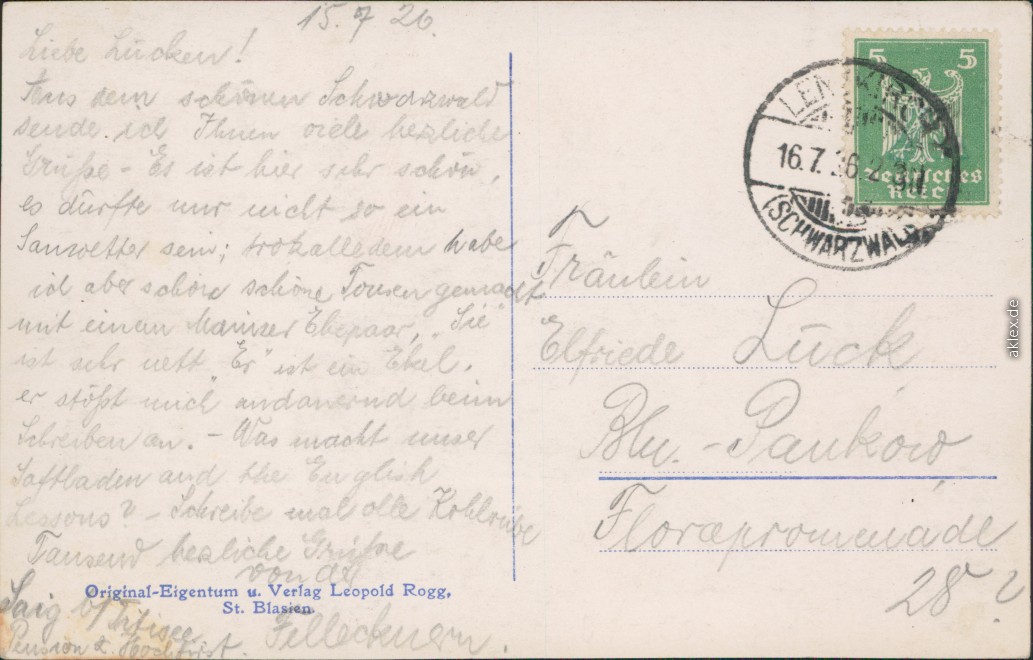 15.7.26.
Liebe Lücken!
Aus dem schönen Schwarzwald
sende ich Ihnen viele herzliche
Grüße - Es ist hier sehr schön,
es dürfte nur nicht so ein
Sauwetter sein; trotzalledem habe
ich aber schon schöne Touren gemacht
mit einem Mainzer Ehepaar, „Sie"
ist sehr nett „Er" ist ein Ekel,
er stößt mich andauernd beim
Schreiben an. - Was macht unser
Saftladen and the English
Lessons? - Schreibe mal olle Kohlrübe
Tausend herzliche Grüße
von der
Saig b/ Titisee
Pension z. Hochfirst.
Original-Eigentum u. Verlag Leopold Rogg,
St. Blasien.
5 5
Deutsches
Reich
LENZKIRCH
16.7.26.2-3N
(SCHWARZWALD)
Fräulein
Elfriede Lück
Bln. - Pankow
Florapromenade
28
aklex.de